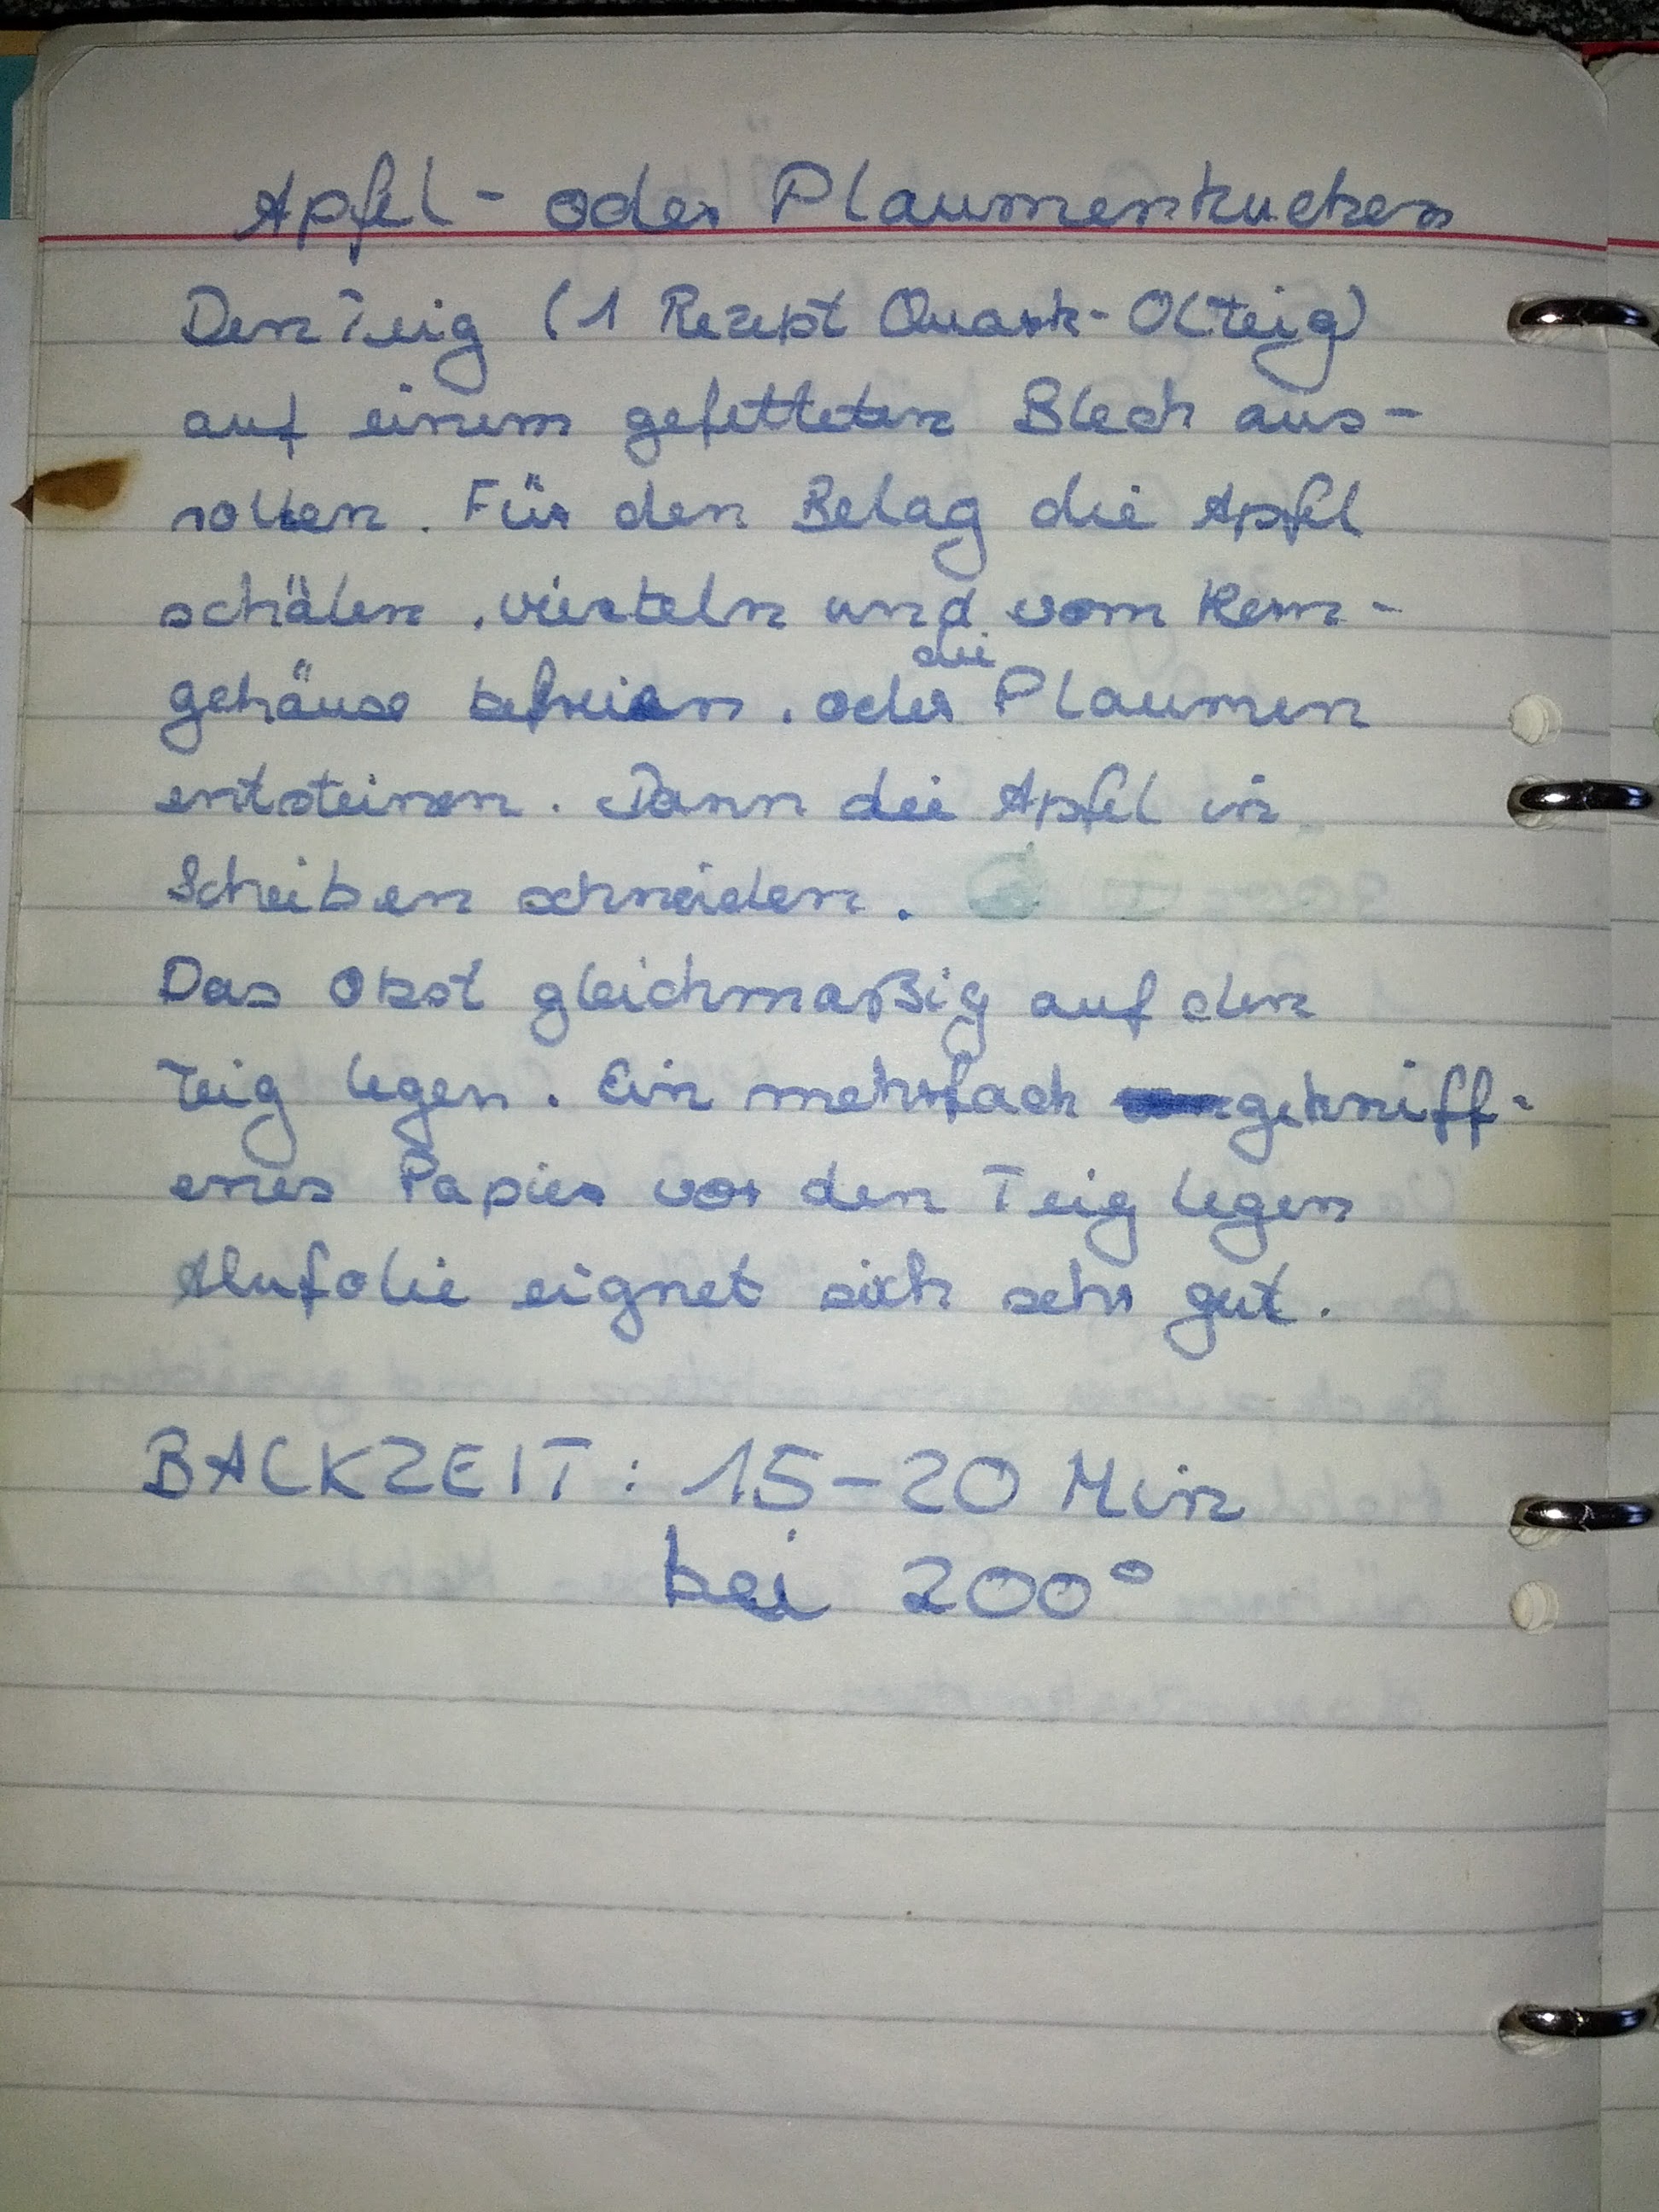 Apfel- oder Plaumenkuchen
Den Teig (1 Rezept Quark-Olteig)
auf einem gefetteten Blech aus-
rollen. Für den Belag die Apfel
schälen, vierteln und vom Kern-
gehäuse befreien. oder die Plaumen
entsteinen. Dann die Apfel in
Scheiben schneiden.
Das Obst gleichmaßig auf den
Teig legen. Ein mehrfach gekniff-
enes Papier vor den Teig legen
Alufolie eignet sich sehr gut.
BACKZEIT: 15-20 Min
bei 200°